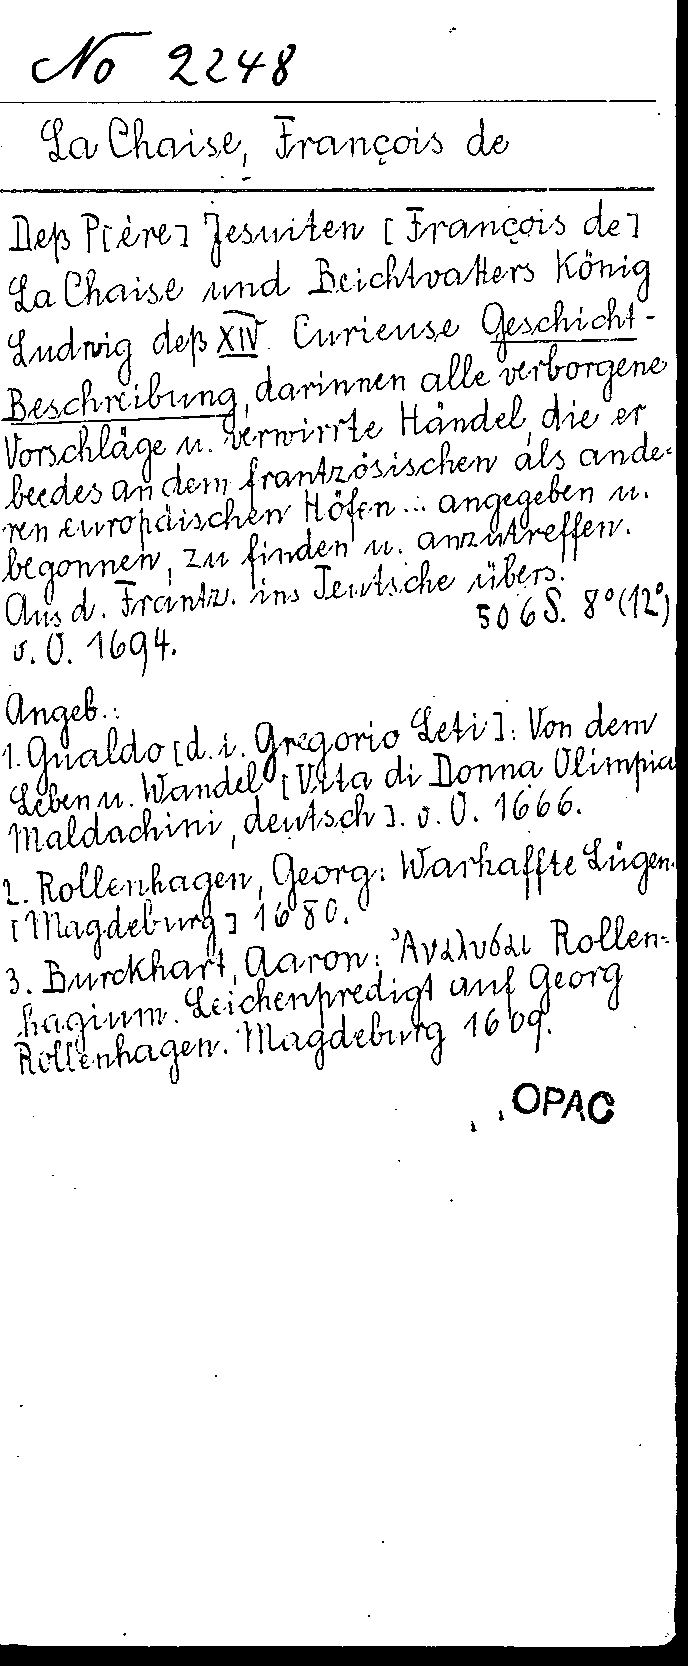 No 2248
La Chaise, François de
Deß P[ère] Jesuiten [François de]
La Chaise und Beichtvatters König
Ludwig deß XIV. Curieuse Geschicht-
Beschreibung, darinnen alle verborgene
Vorschläge u. verwirrte Händel, die er
beedes an dem frantzösischen als ande-
ren europäischen Höfen... angegeben u.
begonnen, zu finden u. anzutreffen.
Aus d. Frantz. ins Teutsche übers.
o. O. 1694. 506 S. 8° (12°)
Angeb.:
1. Gualdo [d. i. Gregorio Leti]: Von dem
Leben u. Wandel [Vita di Donna Olimpia
Maldachini, deutsch]. o. O. 1666.
2. Rollenhagen, Georg: Warhaffte Lügen.
[Magdeburg] 1680.
3. Burckhart, Aaron: Ἀναλυσει Rollen-
hagium. Leichenpredigt auf Georg
Rollenhagen. Magdeburg 1609.
OPAC